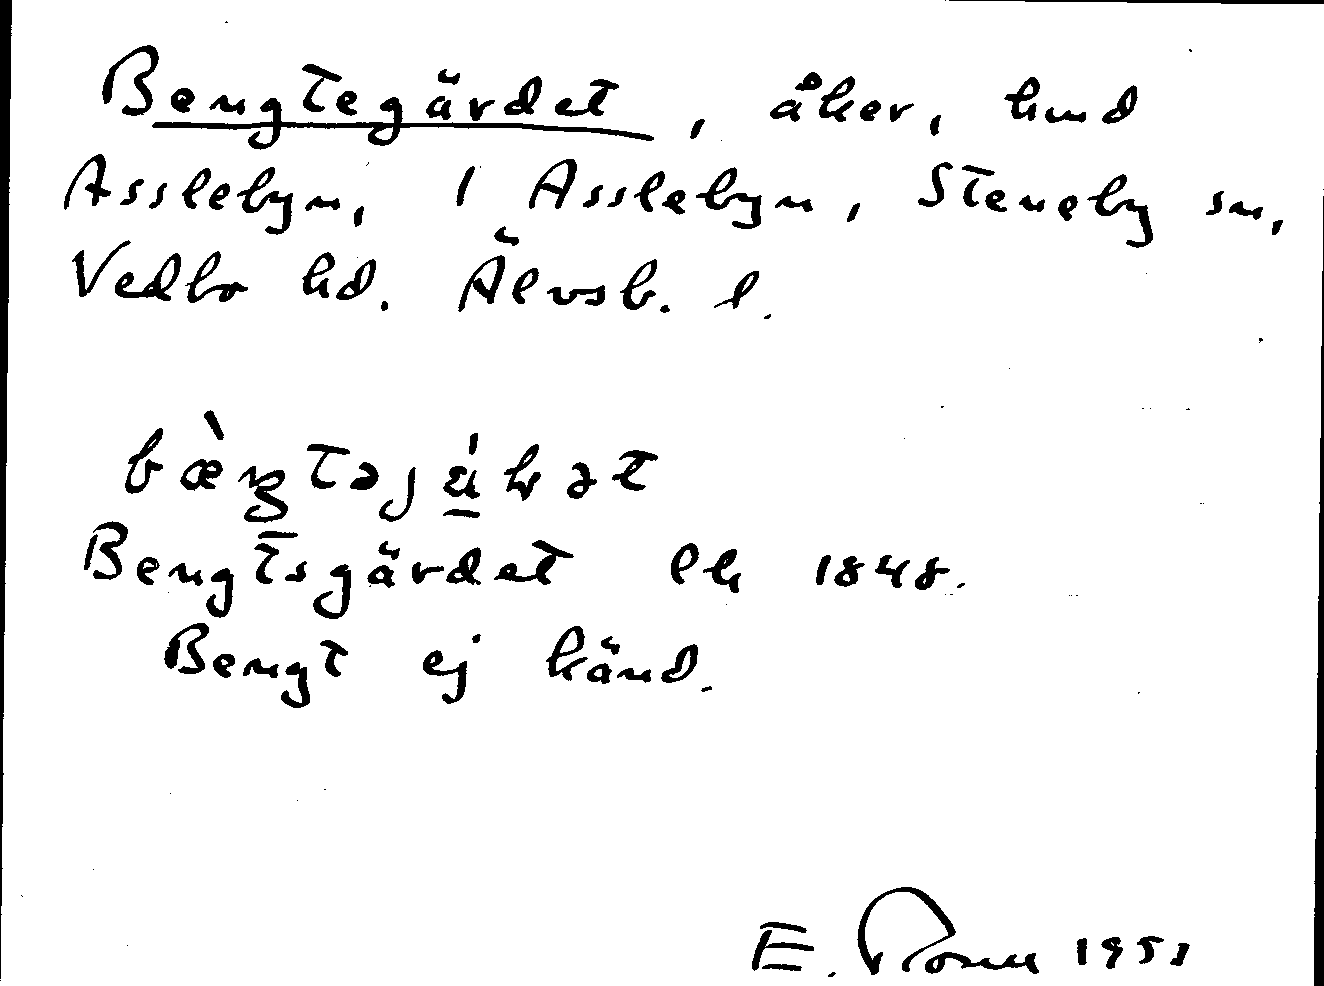 Bengtegärdet, åker, hmd
Asslebyn, 1 Asslebyn, Steneby sn,
Vedbo hd. Älvsb. l.
Bengtsgärdet lh 1848.
Bengt ej känd.
E. 1951